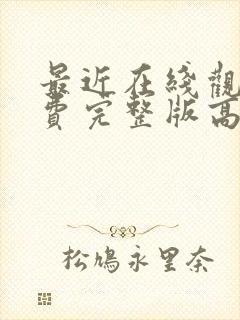 最近在线觀
费完整版高
松鳩永里奈